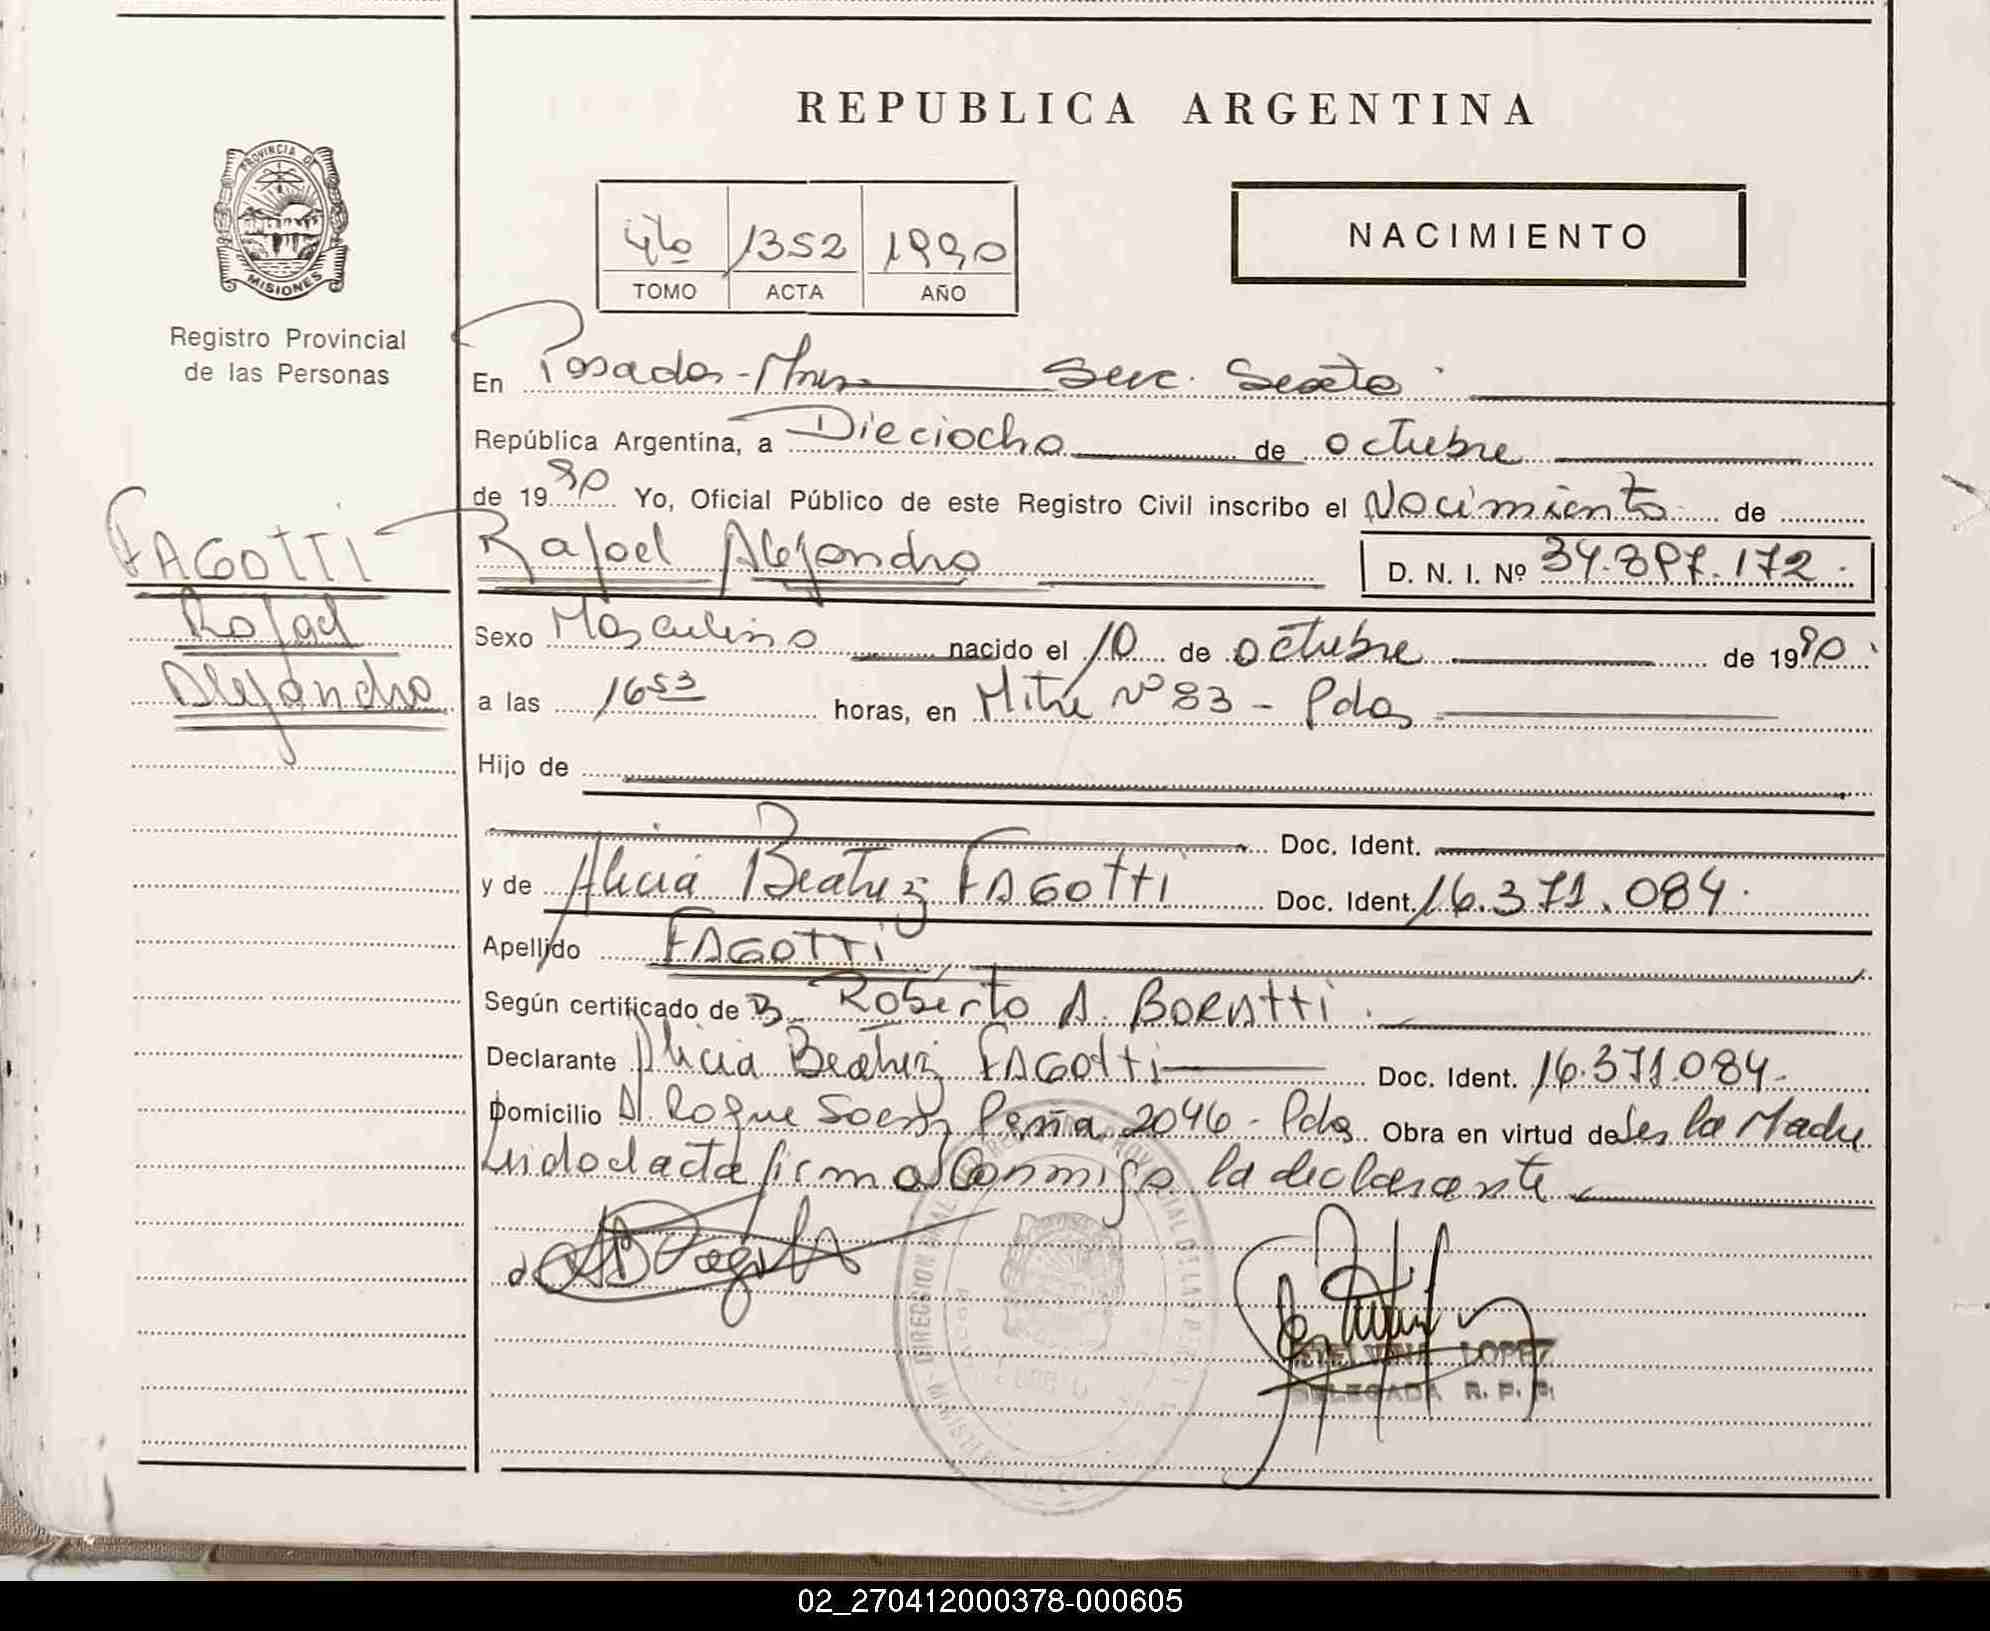 REPUBLICA ARGENTINA
PROVINCIA DE
MISIONES
Registro Provincial
de las Personas
4to 1352 1990
TOMO ACTA AÑO
NACIMIENTO
En Posadas - Mnes Secc. Sexta
República Argentina, a Dieciocho de octubre
de 1990 Yo, Oficial Público de este Registro Civil inscribo el Nacimiento de
FAGOTTI
Rafael
Alejandro
Rafael Alejandro D. N. I. Nº 34.897.172.
Sexo Masculino nacido el 10 de octubre de 1990.
a las 16 53 horas, en Mitre Nº 83 - Pdas
Hijo de
Doc. Ident.
y de Alicia Beatriz FAGOTTI Doc. Ident. 16.371.084.
Apellido FAGOTTI
Según certificado de Roberto A. BORATTI.
Declarante Alicia Beatriz FAGOTTI Doc. Ident. 16.371.084.
Domicilio Roque Saenz Peña 2046 - Pdas Obra en virtud de Ser la Madre
Leida el acta firma Conmigo la declarante
ETELVINA LOPEZ
DELEGADA R. P. P.
02_270412000378-000605